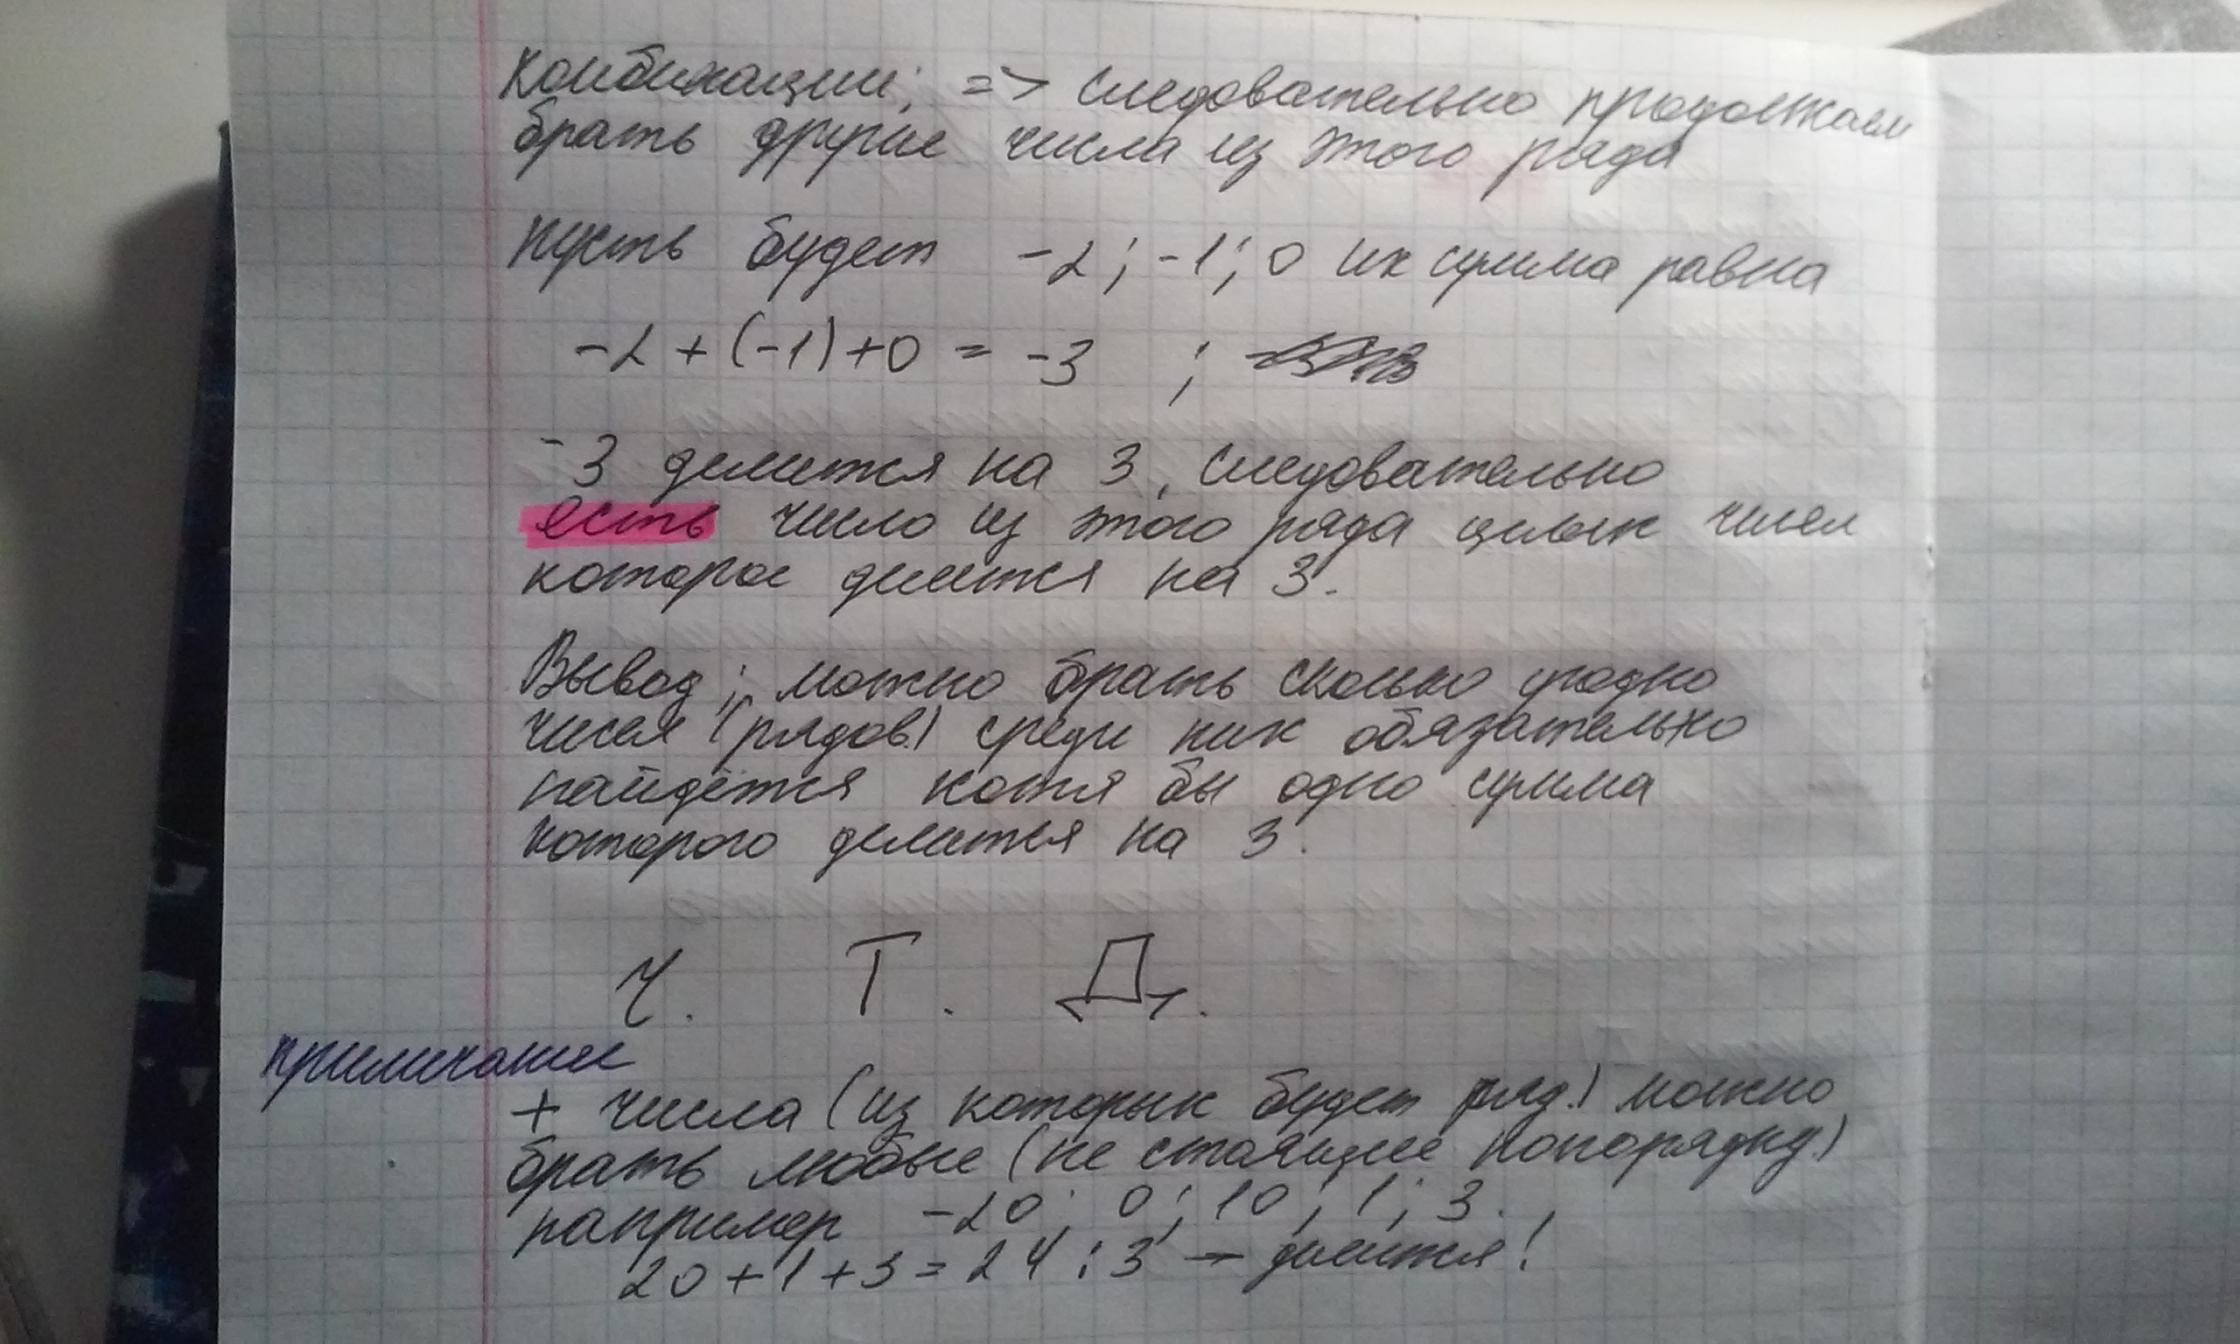 комбинации; => следовательно продолжаем
брать другие числа из этого ряда
Пусть будет -2; -1; 0 их сумма равна
-2 + (-1) + 0 = -3 ;
-3 делится на 3, следовательно
есть число из этого ряда целых чисел
которое делится на 3.
Вывод; можно брать сколько угодно
чисел (рядов) среди них обязательно
найдётся хотя бы одно сумма
которого делиться на 3.
Ч. Т. Д.
примечание
+ числа (из которых будет ряд.) можно
брать любые (не стоящие попорядку.)
например -20; 0; 10; 1; 3.
20 + 1 + 3 = 24 : 3 - делится!